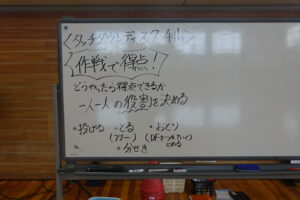 <タッチダウンディスク4th>
作戦で得点!
どうやったら得点できるか
一人一人の役割を決める
・投げる ・とる ・おとり
(フリー) (DFをつれていく)
・分せき